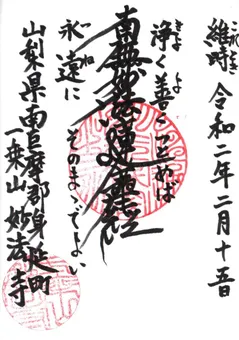 維時 令和二年二月十五日
これとき
浄く善くつとめば
きよ よ
南無妙法蓮華経
永遠に
つね
そのまゝでよい
山梨県南巨摩郡身延町
一乗山 妙法寺